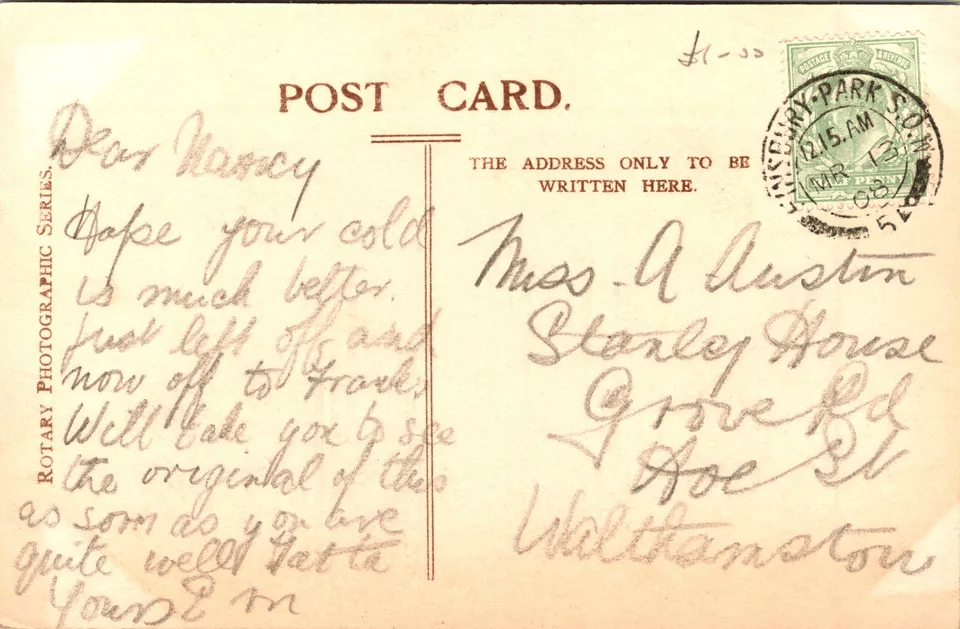 £1-00
POST CARD.
THE ADDRESS ONLY TO BE
WRITTEN HERE.
ROTARY PHOTOGRAPHIC SERIES.
POSTAGE & REVENUE
HALF PENNY
FINSBURY-PARK S.O.N.
12.15.AM
MR 13
08
54
Dear Nancy
Hope your cold
is much better.
Just left off and
now off to Franks
Will take you to see
the original of this
as soon as you are
quite well Tatta
Yours E m
Miss A Austin
Stanley House
Grove Rd
Hoe St
Walthamstow